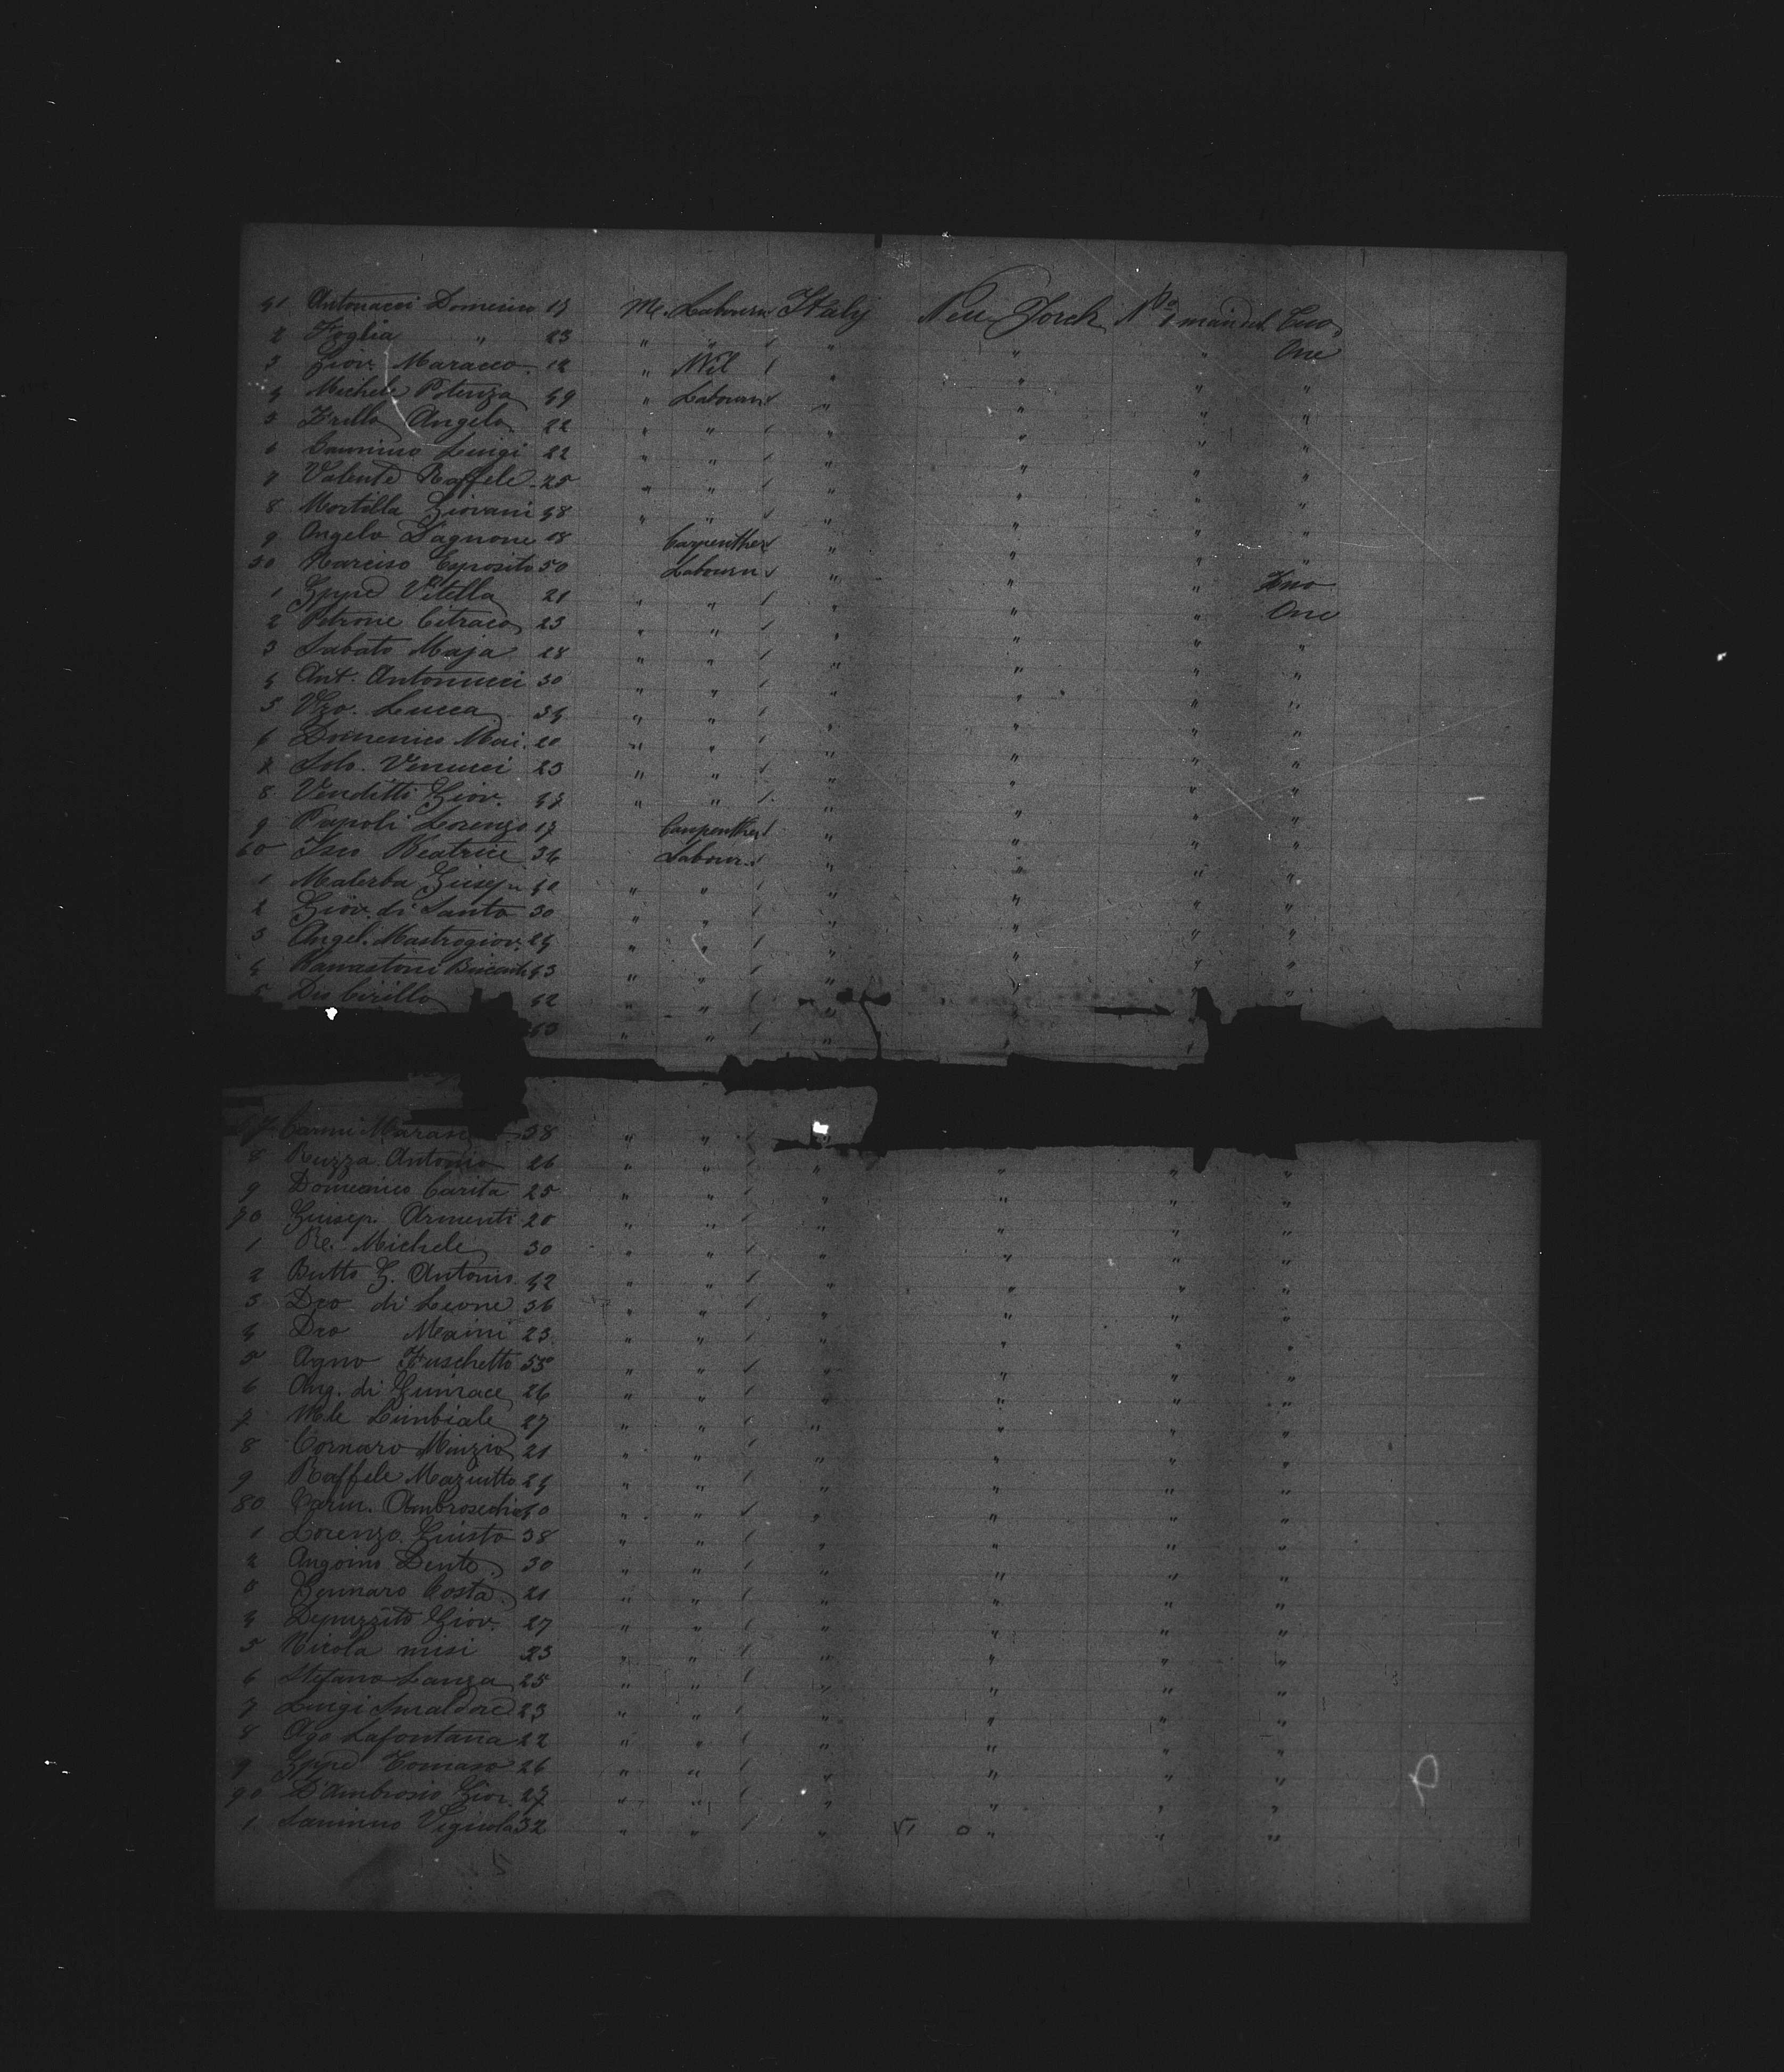 41 Antonacci Domenico 17 M. Labourn Italy New Jorck No 1 mandel Two
2 Foglia " 23 " " " " " One
3 Giov. Maracco 12 " Nil " " " "
4 Michele Potenza 49 " Labourn " " " "
5 Zrillo Angelo 22 " " " " " "
6 Cannino Luigi 22 " " " " " "
7 Valente Raffele 25 " " " " " "
8 Mortilla Giovani 48 " " " " " "
9 Angelo Dagnone 18 Carpenther " " " "
50 Narciso Esposito 50 Labourn " " " Two
1 Gppe Vitella 21 " " " " " One
2 Petrone Citraco 23 " " " " " "
3 Sabato Maja 28 " " " " " "
4 Ant. Antonucci 30 " " " " " "
5 Vzo. Lucca 34 " " " " " "
6 Domenico Mai 20 " " " " " "
7 Venucci 23 " " " " " "
8 Venditti Giov. 47 " " " " " "
9 Papoli Lorenzo 17 Carpenther " " " "
60 Isco Beatrice 36 Labour " " " "
1 Malerba Giusep. 40 " " " " " "
2 Giov. di Santo 30 " " " " " "
3 Angel. Mastrogiov. 24 " " " " " "
4 43 " " " " " "
5 Dio Cirillo 42 " " " " " "
" " "
7 Carmi 38 " "
8 Ruzza Antonio 26 " " " " " "
9 Domenico Carita 25 " " " " " "
70 Giusep. Armenti 20 " " " " " "
1 Re. Michele 30 " " " " " "
2 Butto G. Antonio 42 " " " " " "
3 Dco di Leone 36 " " " " " "
4 Dco Maini 23 " " " " " "
5 Agno Fuschetto 55 " " " " " "
6 Ang. di Gunrace 26 " " " " " "
7 Mle Limbiale 27 " " " " " "
8 Cornaro Minzio 21 " " " " " "
9 Raffele Mazuitto 24 " " " " " "
80 Carm. Ambrosechio 40 " " " " " "
1 Lorenzo Guisto 38 " " " " " "
2 Angoino Dente 30 " " " " " "
Gennaro Costa 21 " " " " " "
4 Depuzzito Giov. 27 " " " " " "
5 Nicola misi 23 " " " " " "
6 Stefano Lanza 25 " " " " " "
7 Luigi Smaldore 23 " " " " " "
8 Ago Lafontana 22 " " " " " "
9 Gppe Tomaso 26 " " " " " "
90 D'Ambrosio Giov. 27 " " " " " "
1 Sannino Vignola 32 " " " " " "